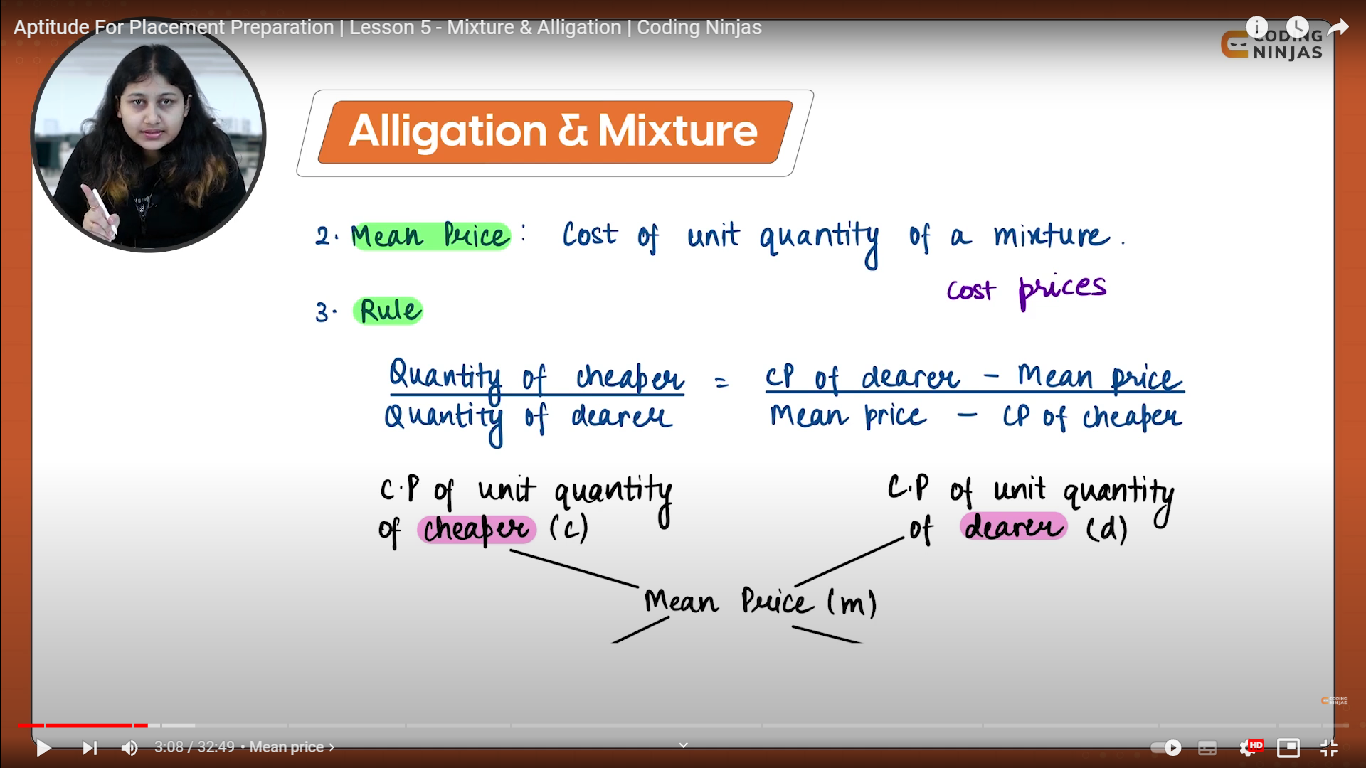 Aptitude For Placement Preparation | Lesson 5 - Mixture & Alligation | Coding Ninjas
CODING
NINJAS
Alligation & Mixture
2. Mean Price : Cost of unit quantity of a mixture.
cost prices
3. Rule
Quantity of cheaper = CP of dearer - Mean price
Quantity of dearer Mean price - CP of cheaper
C.P of unit quantity C.P of unit quantity
of cheaper (c) of dearer (d)
Mean Price (m)
CODING
NINJAS
3:08 / 32:49 • Mean price >
HD